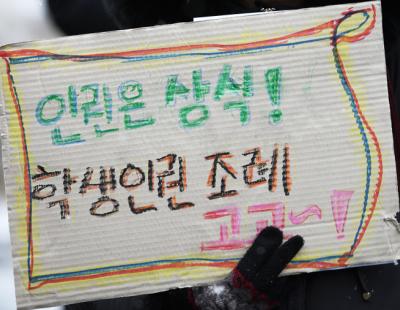 인권은 상식!
학생인권 조례
고고~!